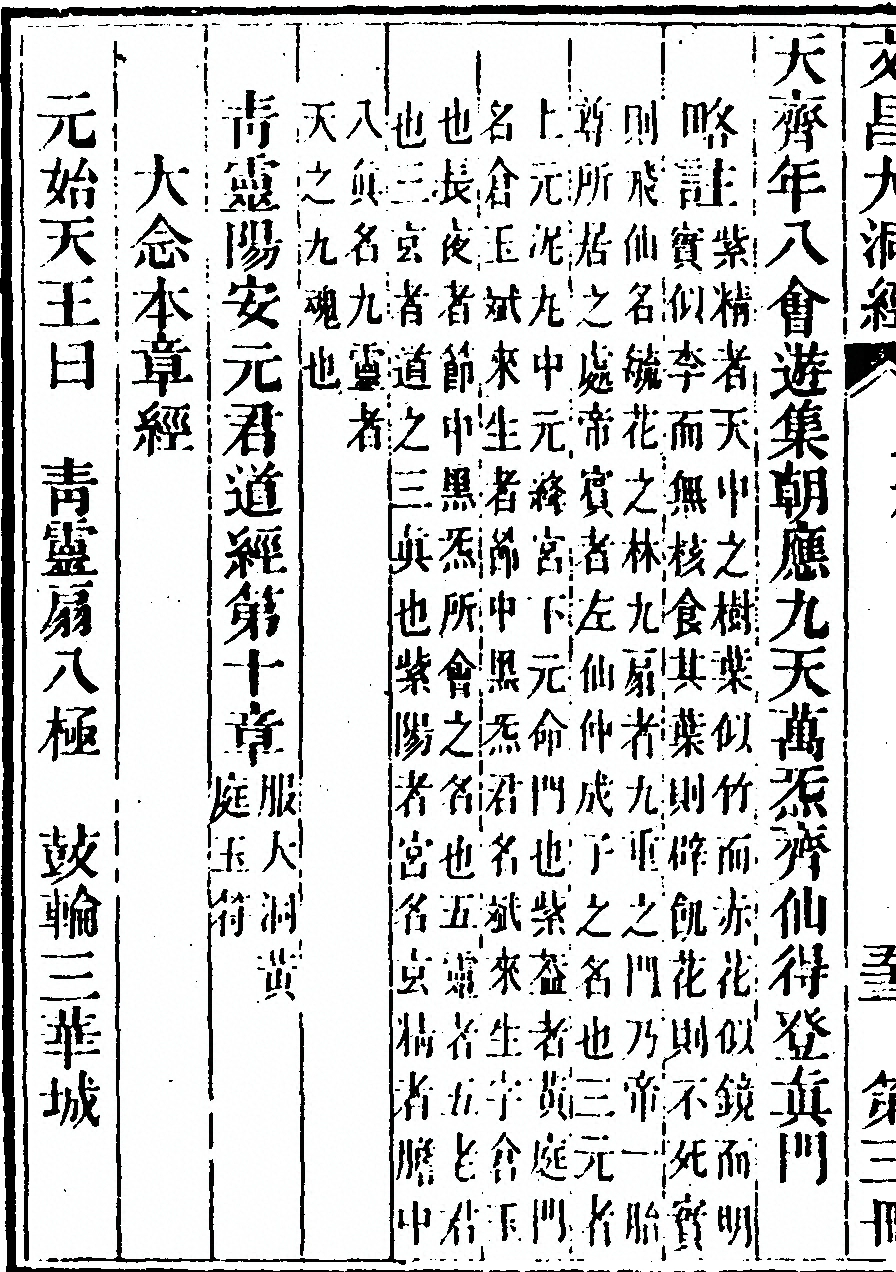 文昌大洞經 第三冊
天齊年八會遊集朝應九天萬炁齊仙得登真門
略註 紫精者天中之樹葉似竹而赤花似鏡而明
實似李而無核食其葉則辟飢花則不死實
則飛仙名毓花之林九扇者九重之門乃帝一胎
尊所居之處帝賓者左仙仲成子之名也三元者
上元泥丸中元絳宮下元命門也紫蓋者黃庭門
名倉玉斌來生者節中黑炁君名斌來生字倉玉
也長夜者節中黑炁所會之名也五靈者五老君
也三玄者道之三真也紫陽者宮名玄精者膽中
八真名九靈者
天之九魂也
青靈陽安元君道經第十章 服大洞黃
庭玉符
大念本章經
元始天王曰 青靈扇八極 鼓輪三華城